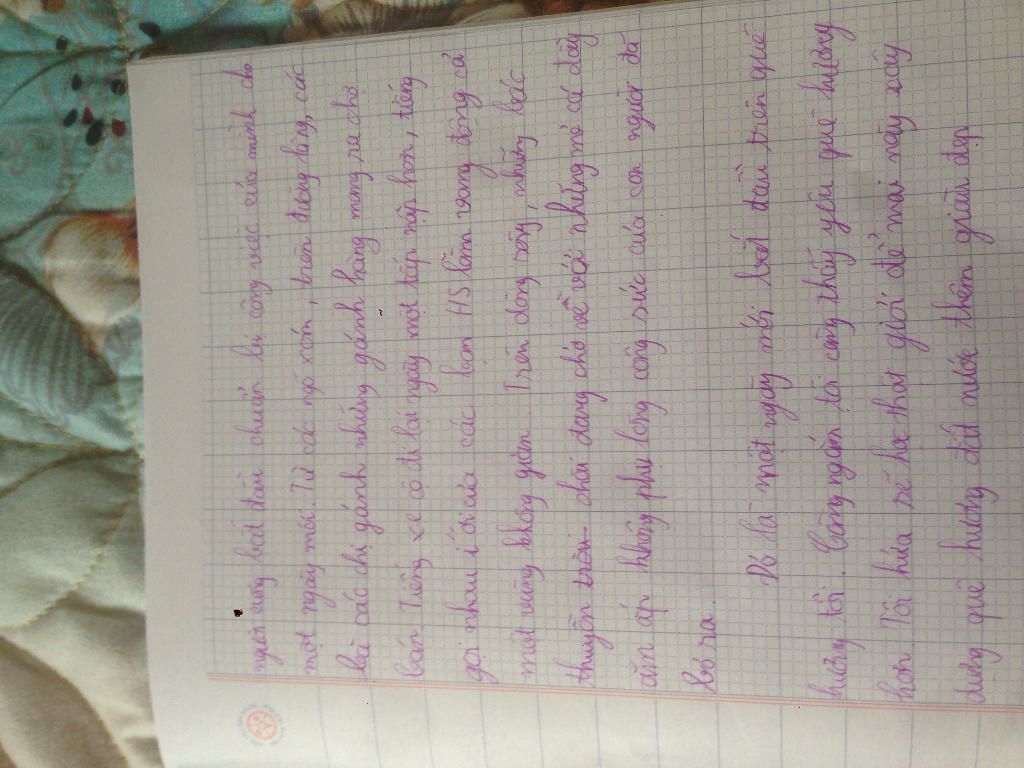 người cũng bắt đầu chuẩn bị công việc của mình cho
một ngày mới. Từ các ngõ xóm, trên đường làng, các
bà các chị gánh những gánh hàng mang ra chợ
bán. Tiếng xe cộ đi lại ngày một tấp nập hơn, tiếng
gọi nhau í ới của các bạn HS làm vang động cả
một vùng không gian. Trên dòng sông, những bác
thuyền trôi chài đang chở về với những mẻ cá đầy
ăm áp không phụ lòng công sức của con người đã
bỏ ra.
Đó là một ngày mới bắt đầu trên quê
hương tôi. Càng ngắm tôi càng thấy yêu quê hương
hơn. Tôi hứa sẽ học thật giỏi để mai này xây
dựng quê hương đất nước thêm giàu đẹp